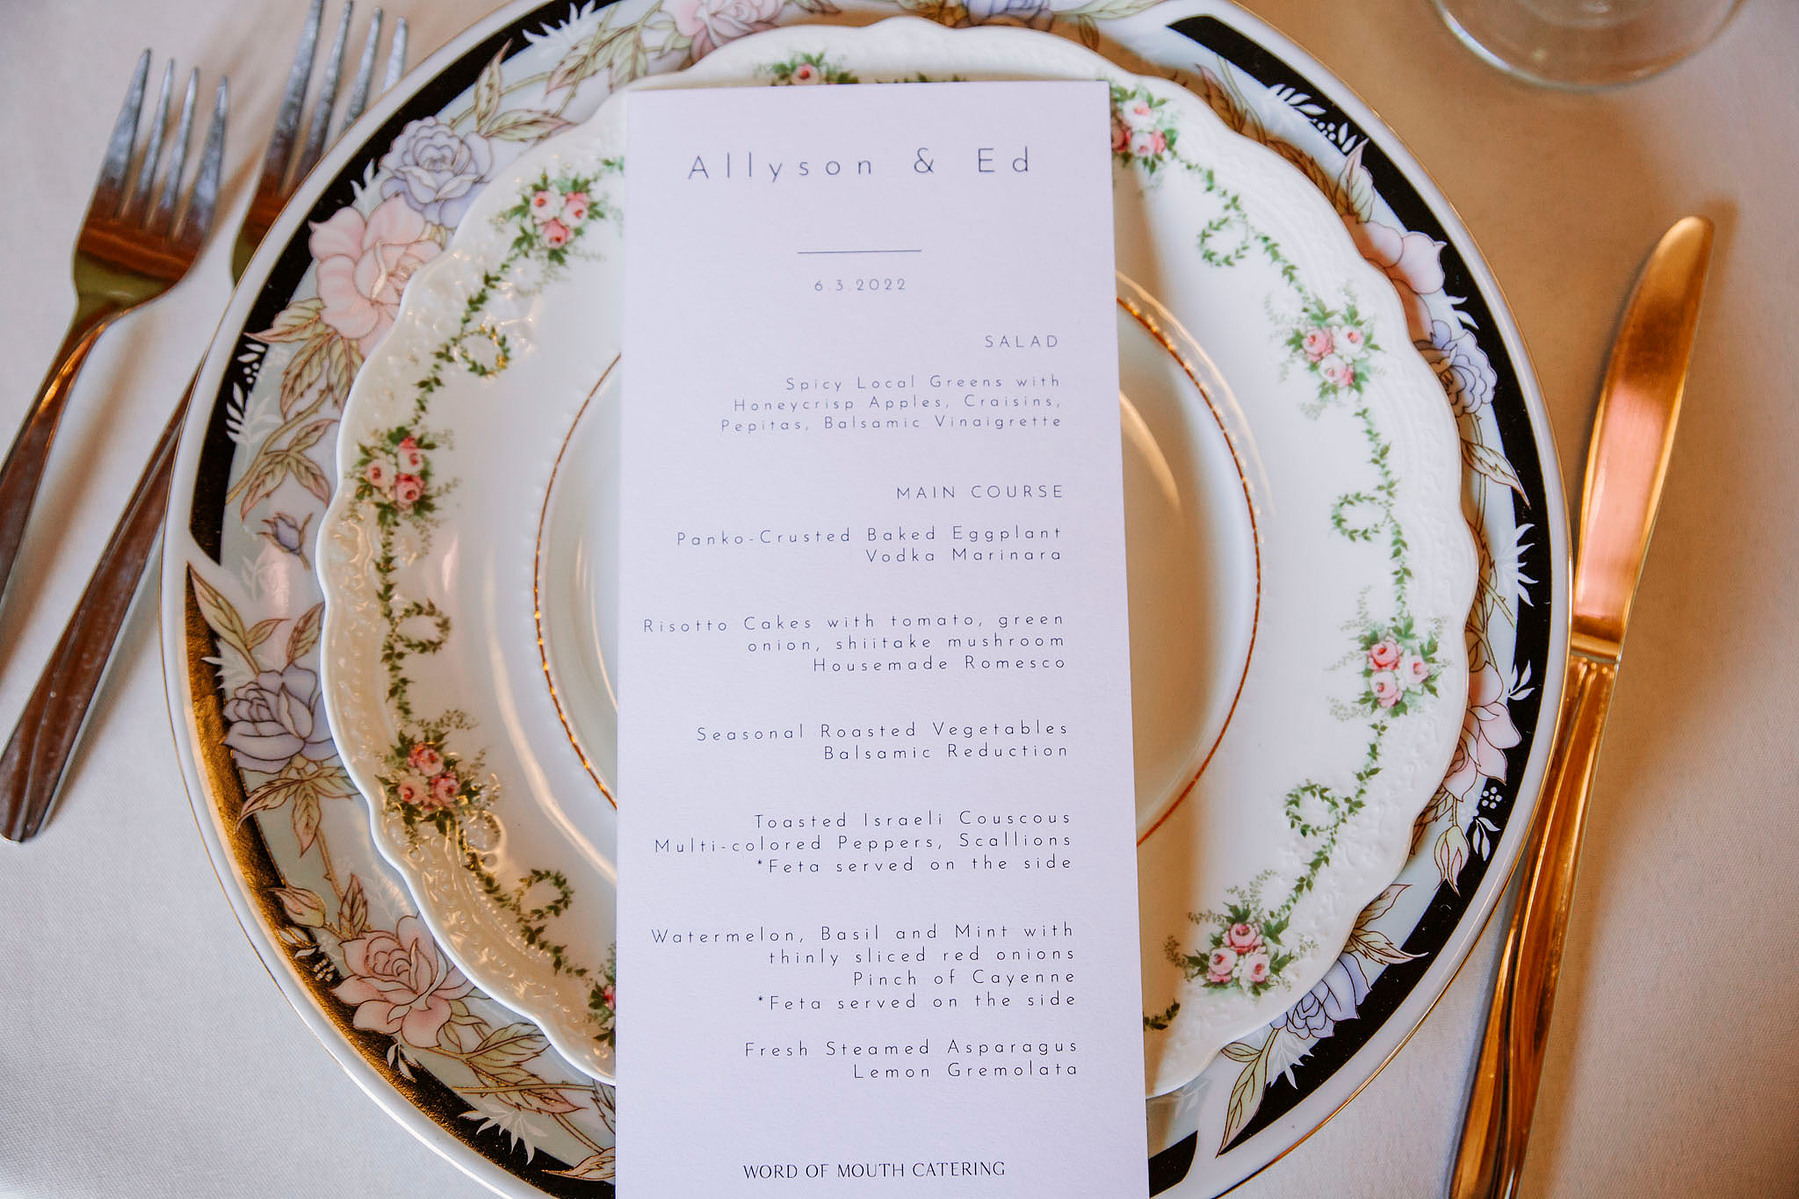 Allyson & Ed
6.3.2022
SALAD
Spicy Local Greens with
Honeycrisp Apples, Craisins,
Pepitas, Balsamic Vinaigrette
MAIN COURSE
Panko-Crusted Baked Eggplant
Vodka Marinara
Risotto Cakes with tomato, green
onion, shiitake mushroom
Housemade Romesco
Seasonal Roasted Vegetables
Balsamic Reduction
Toasted Israeli Couscous
Multi-colored Peppers, Scallions
*Feta served on the side
Watermelon, Basil and Mint with
thinly sliced red onions
Pinch of Cayenne
*Feta served on the side
Fresh Steamed Asparagus
Lemon Gremolata
WORD OF MOUTH CATERING